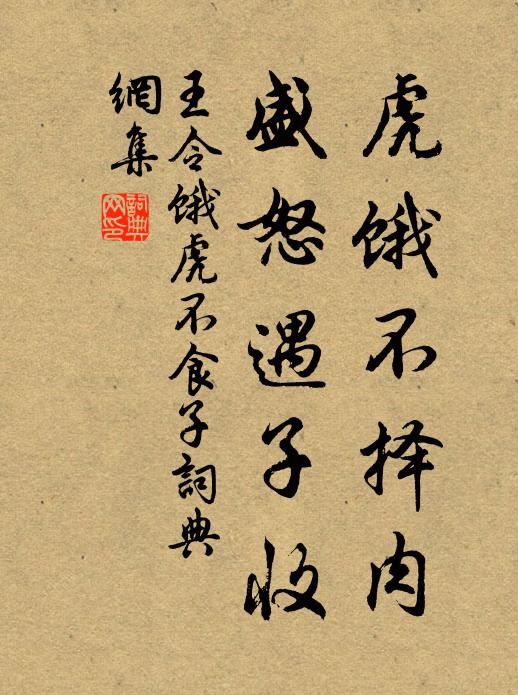 虎饿不择肉
盛怒遇子收
王令饿虎不食子詞典
網集
詞典网印